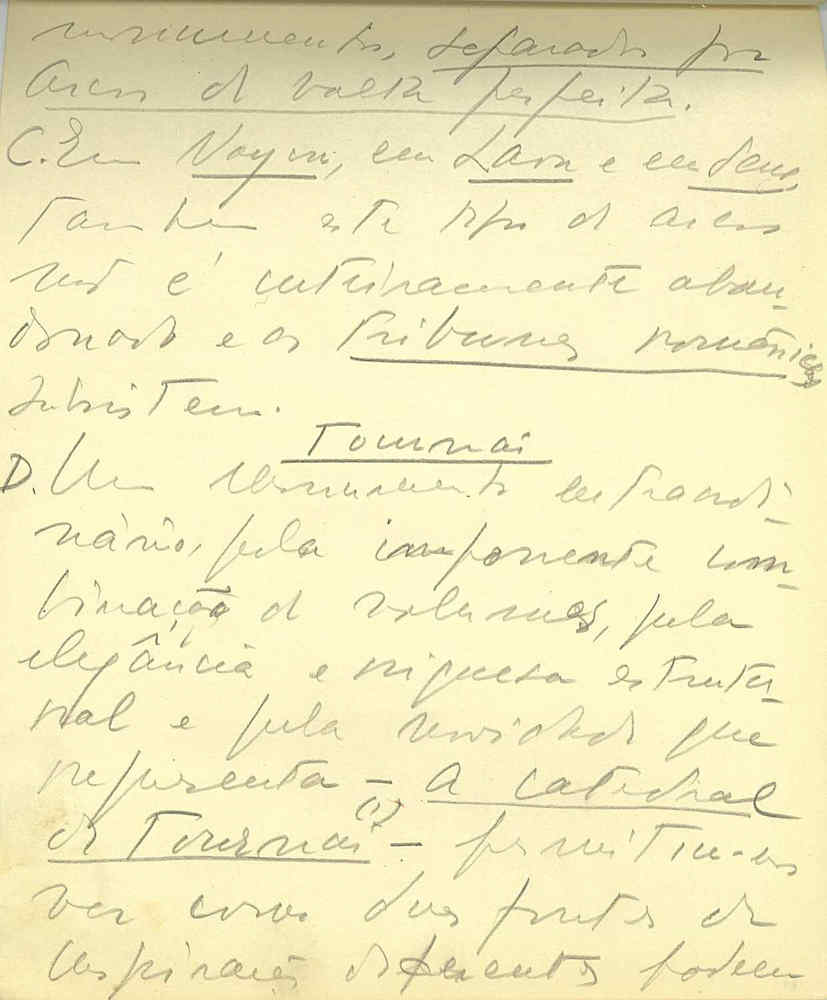 separados por
arcos de volta perfeita.
C. Em Noyon, em Laon e em Sens,
tambem este tipo de arcos
não é inteiramente aban-
donado e as tribunas românicas
subsistem.
Tournai
D. Um monumento extraordi-
nário, pela imponente com-
binação de volumes, pela
elegância e riqueza estrutu-
ral e pela novidade que
representa – a catedral
de Tournai (1) – permitiu-nos
ver como duas fontes de
inspiração diferentes podem